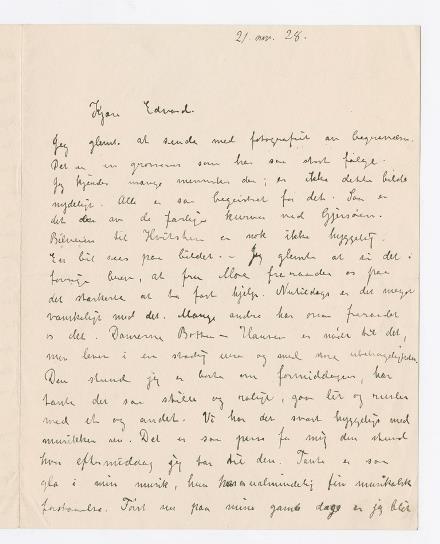 21. nov. 28.
Kjære Edvard.
Jeg glemte at sende med fotografiet av begravelsen.
Det er en grosserer som har saa stort følge.
Jeg kjender mange mennesker der; er ikke dette bilde
nydeligt. Alle er saa begeistret for det. Saa er
det av de farlige kurver ved Gjersøen.
Bilveien til Hvitsten er nok ikke hyggelig.
En bil sees paa bildet. – Jeg glemte at si det i
forrige brev, at fru Moe fremdeles er paa
det sterkeste at ha fast hjelp. Nutildags er det meget
vanskeligt med det. Mange andre har
er det. Damerne Botten-Hansen er nødt til det,
men lever i en stadig uro og med store ubehageligheder.
Den stund jeg er borte om formiddagen, har
tante det saa stille og roligt, gaar her og rusler
med et og andet. Vi har det svært hyggeligt med
musikken nu. Det er saa pent for mig den stund
hver eftermiddag jeg har til den. Tante er saa
gla i min musik, hun har en ualmindelig fin musikalsk
forstaaelse. Tænk nu paa mine gamle dage er jeg blit